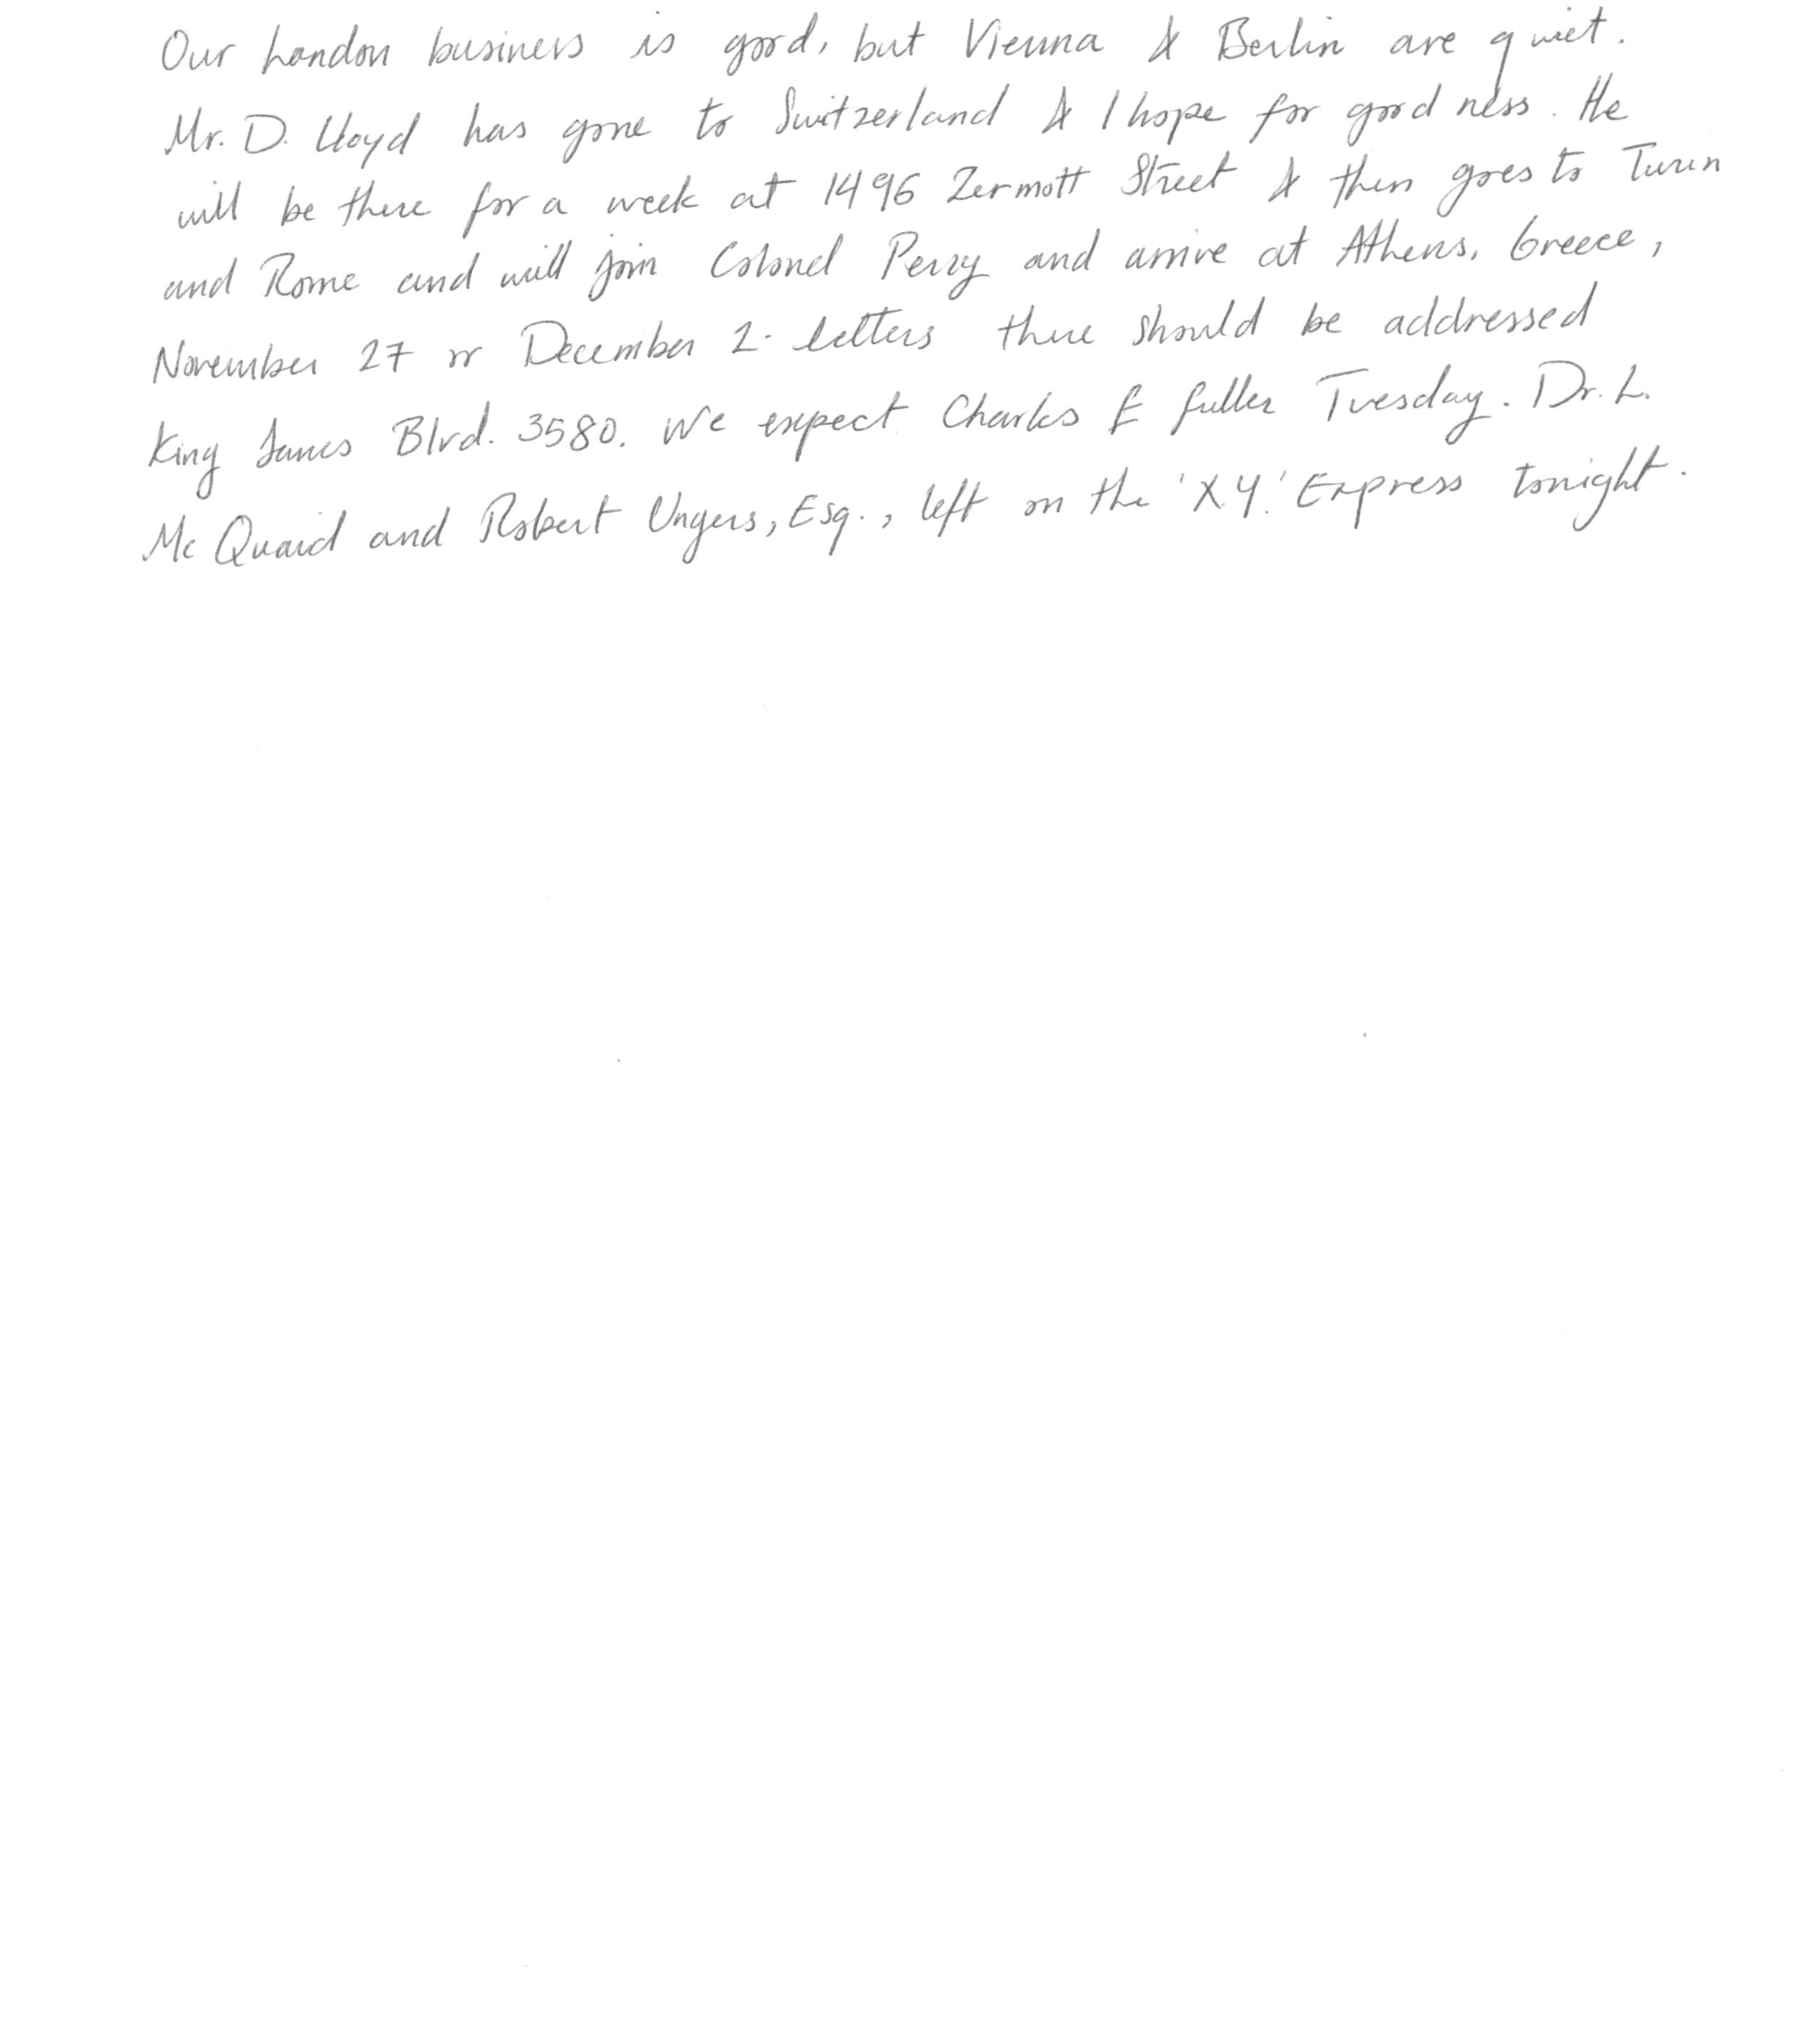 Our London business is good, but Vienna & Berlin are quiet.
Mr. D. Lloyd has gone to Switzerland & I hope for good ness. He
will be there for a week at 1496 Zermott Street & then goes to Turin
and Rome and will join Colonel Perry and arrive at Athens, Greece,
November 27 or December 2. Letters there should be addressed
King James Blvd. 3580. We expect Charles E Fuller Tuesday. Dr. L.
Mc Quaid and Robert Ungers, Esq., left on the 'X.Y.' Express tonight.